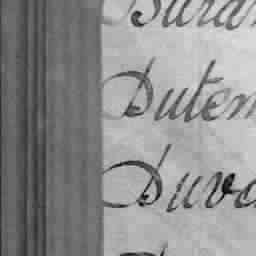 Duran
Dutem
Duva